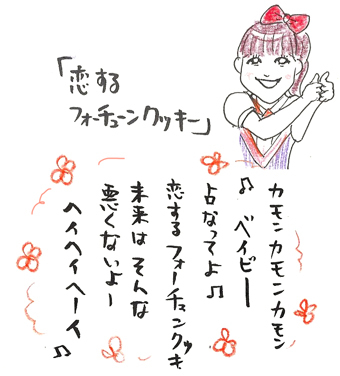 「恋する
フォーチューンクッキー」
カモンカモンカモン
♫ ベイビー
占なってよ♫
恋するフォーチュンクッキ
未来はそんな
悪くないよー
ヘイヘイヘーイ♫